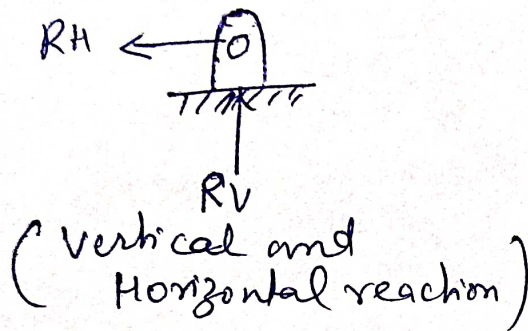 RH
RV
(Vertical and
Horizontal reaction)